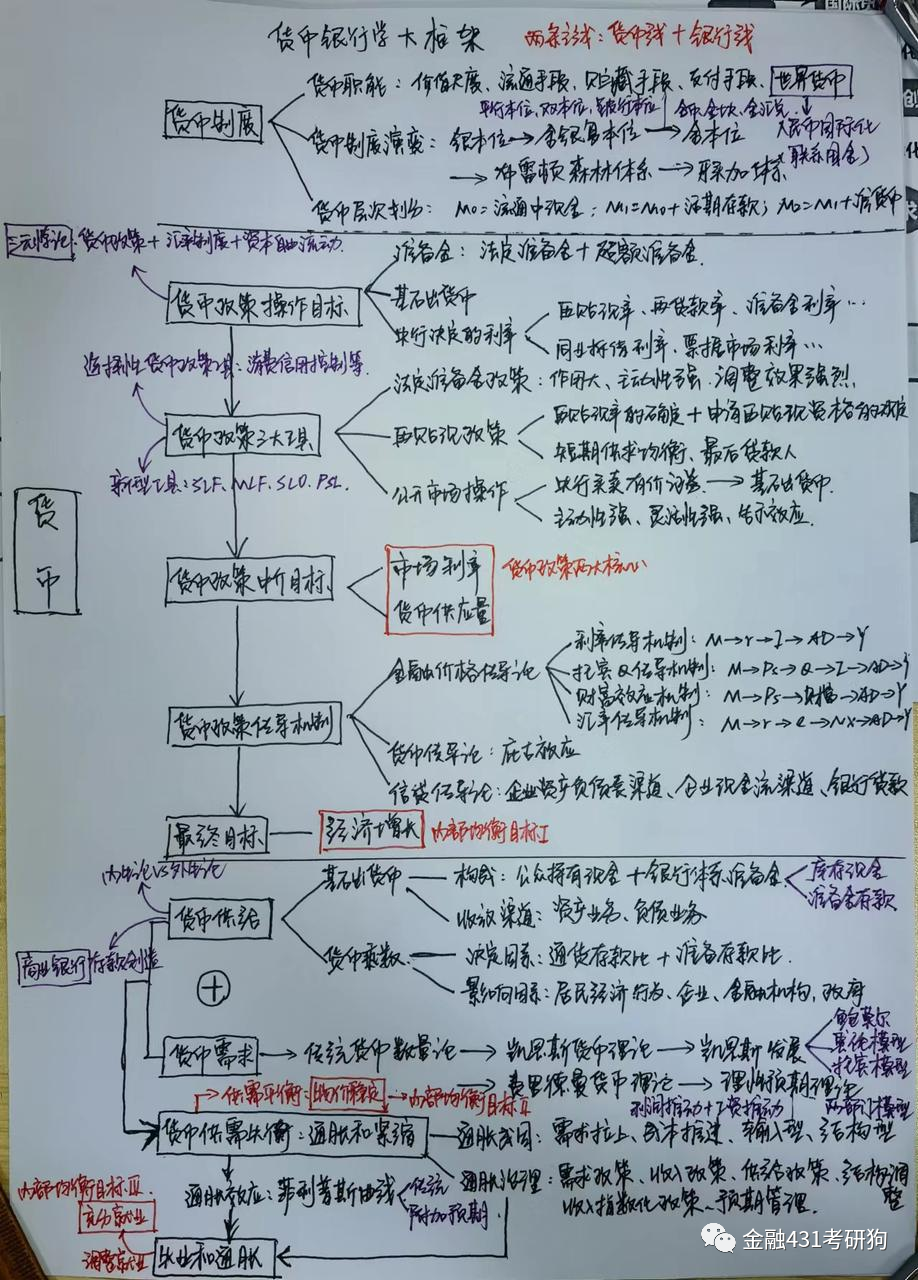 货币银行学大框架 两条主线：货币线+银行线
货币职能：价值尺度、流通手段、贮藏手段、支付手段、世界货币
平行本位，双本位，跛行本位 金币，金块，金汇兑
货币制度
货币制度演变：银本位→金银复本位→金本位 人民币国际化
→布雷顿森林体系→牙买加体系 (联系国金)
货币层次划分：M0=流通中现金；M1=M0+活期存款；M2=M1+准货币
三元悖论：货币政策+汇率制度+资本自由流动
准备金：法定准备金+超额准备金.
货币政策操作目标
基础货币
央行决定的利率
再贴现率、再贷款率、准备金利率…
同业拆借利率、票据市场利率…
选择性货币政策工具：消费信用控制等
法定准备金政策：作用大、主动性强.调整效果强烈.
货币政策三大工具
再贴现政策
再贴现率的确定+申请再贴现资格的规定
短期供求均衡、最后贷款人
新型工具：SLF、MLF、SLO.PSL.
公开市场操作
央行买卖有价证券→基础货币.
主动性强、灵活性强、告示效应.
货币
货币政策中介目标
市场利率
货币供应量
货币政策两大核心
金融价格传导论
利率传导机制：M→r→I→AD→Y
托宾Q传导机制：M→Ps→Q→I→AD→Y
财富效应机制：M→Ps→财富→AD→Y
汇率传导机制：M→r→e→NX→AD→Y
货币政策传导机制
货币传导论：庇古效应
信贷传导论：企业资产负债表渠道、企业现金流渠道、银行贷款
最终目标 经济增长 内部均衡目标I
内生论VS外生论
基础货币
构成：公众持有现金+银行体系准备金
库存现金
准备金存款
货币供给
收放渠道：资产业务、负债业务
商业银行存款创造
货币乘数
决定因素：通货存款比+准备存款比.
影响因素：居民经济行为、企业、金融机构，政府
+
货币需求→传统货币数量论→凯恩斯货币理论→凯恩斯发展
鲍莫尔
惠伦模型
托宾模型
→弗里德曼货币理论→理性预期理论
供需平衡：物价稳定→内部均衡目标II
利润推动+工资推动 两部门模型
货币供需失衡：通胀和紧缩
通胀成因：需求拉上、成本推进、输入型、结构型
通胀治理：需求政策、收入政策、供给政策、结构调整
收入指数化政策、预期管理.
通胀效应：菲利普斯曲线
传统
附加预期.
内部均衡目标III
充分就业
失业和通胀
金融431考研狗